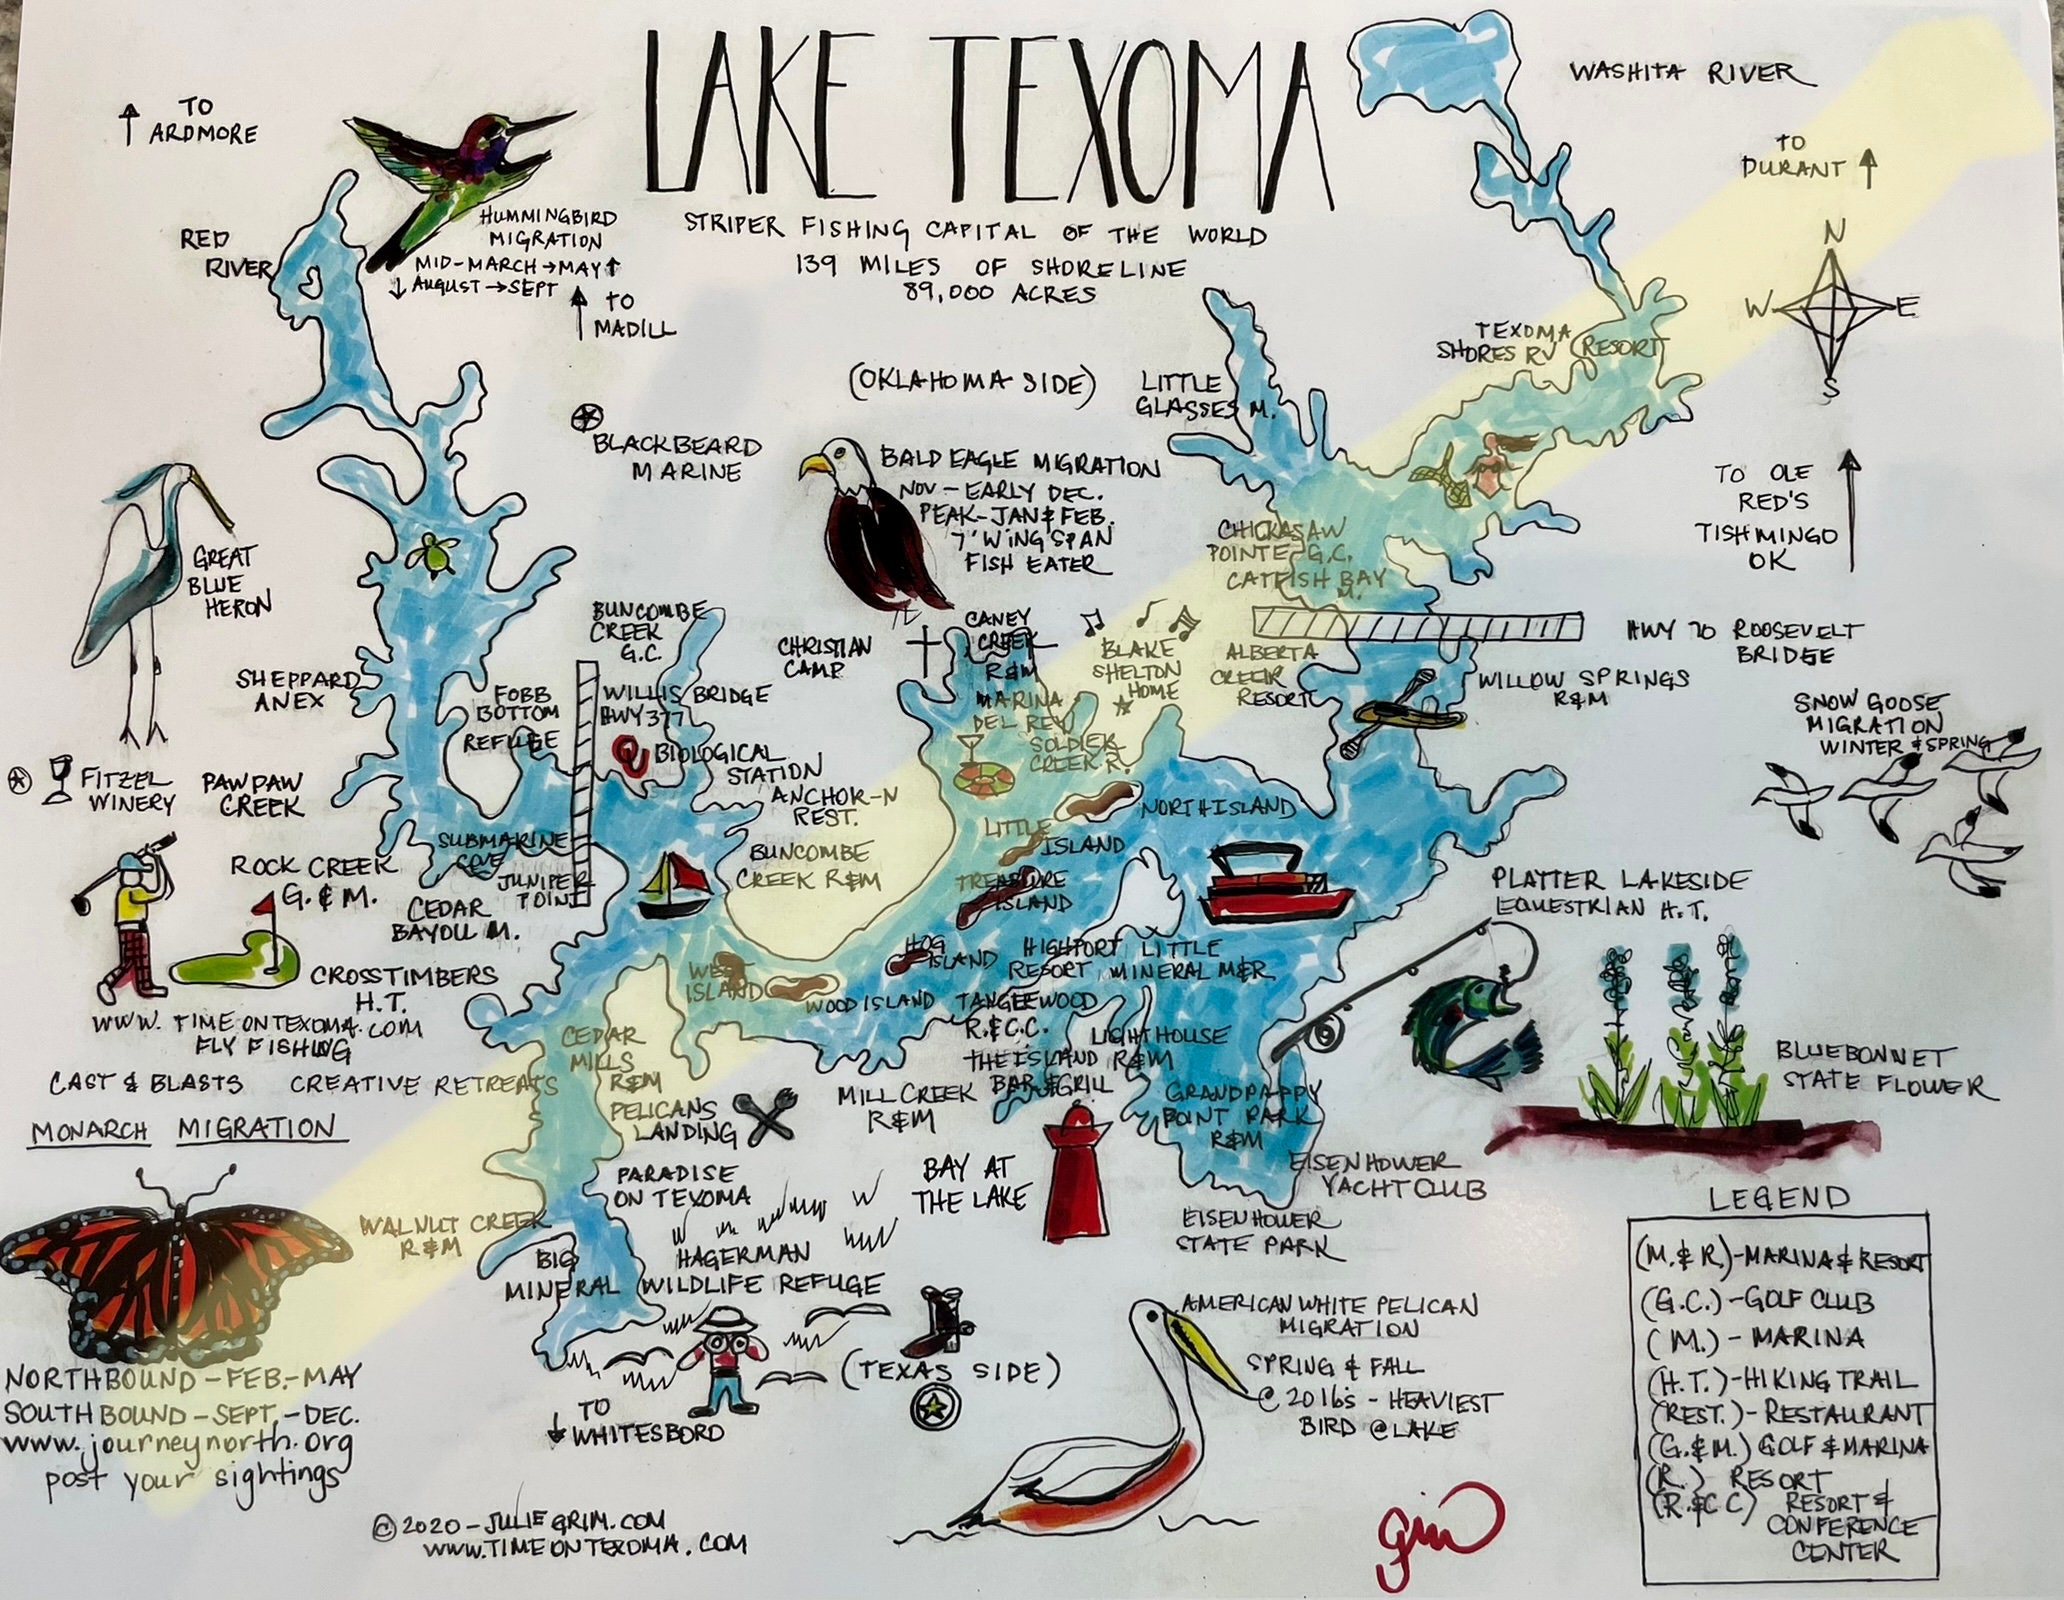 LAKE TEXOMA
STRIPER FISHING CAPITAL OF THE WORLD
139 MILES OF SHORELINE
89,000 ACRES
WASHITA RIVER
TO
ARDMORE
TO
DURANT
N
W
E
S
RED
RIVER
HUMMINGBIRD
MIGRATION
MID-MARCH→MAY↑
↓AUGUST→SEPT
TO
MADILL
(OKLAHOMA SIDE)
LITTLE
GLASSES M.
TEXOMA
SHORES RV RESORT
BLACKBEARD
MARINE
BALD EAGLE MIGRATION
NOV - EARLY DEC.
PEAK-JAN & FEB.
7' WING SPAN
FISH EATER
TO OLE
RED'S
TISHMINGO
OK
GREAT
BLUE
HERON
CHICKASAW
POINTE G.C.
CATFISH BAY
M.
HWY 70 ROOSEVELT
BRIDGE
BUNCOMBE
CREEK
G.C.
CHRISTIAN
CAMP
CANEY
CREEK
R&M
BLAKE
SHELTON
HOME
ALBERTA
CREEK
RESORT
WILLOW SPRINGS
R&M
SHEPPARD
ANEX
FOBB
BOTTOM
REFUGE
WILLIS BRIDGE
HWY 377
MARINA
DEL REY
SOLDIER
CREEK R.
SNOW GOOSE
MIGRATION
WINTER & SPRING
BIOLOGICAL
STATION
FITZEL
WINERY
PAWPAW
CREEK
ANCHOR-N
REST.
NORTH ISLAND
LITTLE
ISLAND
SUBMARINE
COVE
JUNIPER
POINT
BUNCOMBE
CREEK R&M
TREASURE
ISLAND
ROCK CREEK
G. & M.
CEDAR
BAYOU M.
PLATTER LAKESIDE
EQUESTRIAN H.T.
HOG
ISLAND
HIGHPORT
RESORT
LITTLE
MINERAL M&R
CROSSTIMBERS
H.T.
WEST
ISLAND
WOOD ISLAND
TANGLEWOOD
R.&C.C.
WWW.TIMEONTEXOMA.COM
FLY FISHING
CAST & BLASTS
CREATIVE RETREATS
CEDAR
MILLS
R&M
THE ISLAND
BAR & GRILL
LIGHTHOUSE
R&M
BLUEBONNET
STATE FLOWER
PELICANS
LANDING
MILL CREEK
R&M
GRANDPAPPY
POINT PARK
R&M
MONARCH MIGRATION
PARADISE
ON TEXOMA
BAY AT
THE LAKE
EISENHOWER
YACHT CLUB
WALNUT CREEK
R&M
EISENHOWER
STATE PARK
BIG
MINERAL
HAGERMAN
WILDLIFE REFUGE
LEGEND
(M.&R.)-MARINA & RESORT
(G.C.)-GOLF CLUB
(M.)-MARINA
(H.T.)-HIKING TRAIL
(REST.)-RESTAURANT
(G.&M.) GOLF & MARINA
(R.) RESORT
(R.&C C) RESORT &
CONFERENCE
CENTER
AMERICAN WHITE PELICAN
MIGRATION
SPRING & FALL
@ 20 lb's - HEAVIEST
BIRD @ LAKE
(TEXAS SIDE)
TO
WHITESBORO
NORTHBOUND-FEB.-MAY
SOUTHBOUND-SEPT.-DEC.
www.journeynorth.org
post your sightings
©2020-JULIEGRIM.COM
WWW.TIMEONTEXOMA.COM